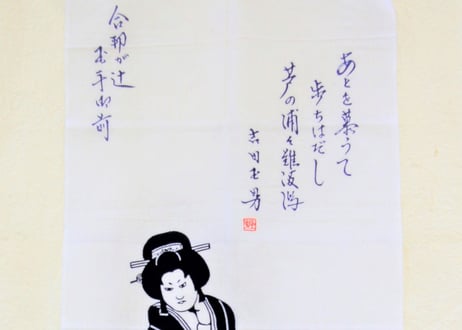 あとを慕うて
歩ちはだし
芦の浦々難波潟
吉田玉男
合邦が辻
玉手御前